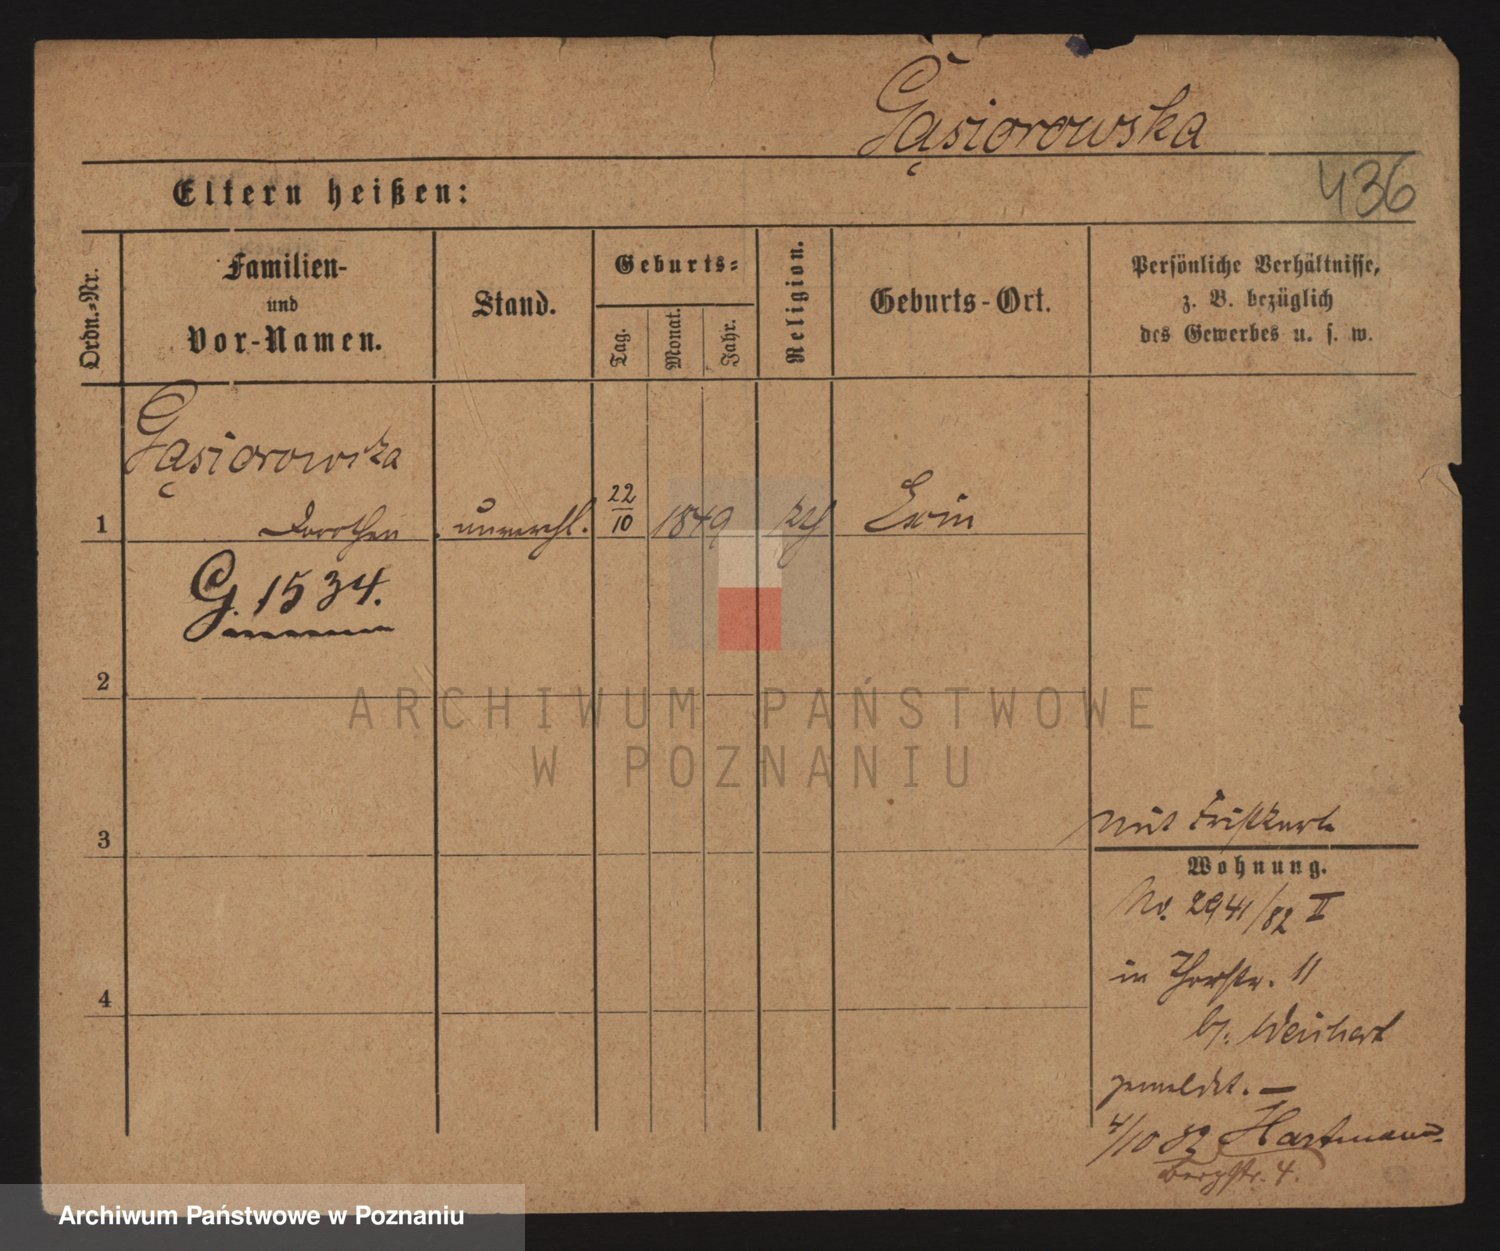 Gąsiorowska
436
Eltern heißen:
Ordn.-Nr.
Familien-
und
Vor-Namen.
Stand.
Geburts-
Tag.
Monat.
Jahr.
Religion.
Geburts-Ort.
Persönliche Verhältnisse,
z. B. bezüglich
des Gewerbes u. s. w.
Gąsiorowska
1 Dorothea unverehl. 22/10 1849 kth Exin
G. 1534.
2
3
4
mit
Wohnung.
No. 2941/82 II
in Thorstr. 11
bei Weichert
gemeldet. —
4/10 82 Hartmann
Bergstr. 4.
ARCHIWUM PAŃSTWOWE
W POZNANIU
Archiwum Państwowe w Poznaniu